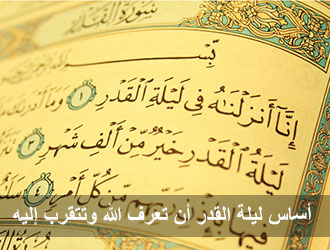 سُورَةُ القَدْرِ
بِسْمِ
إِنَّآ أَنزَلْنَٰهُ فِى لَيْلَةِ ٱلْقَدْرِ ١ وَمَآ أَدْرَىٰكَ
لَيْلَةُ ٱلْقَدْرِ خَيْرٌ مِّنْ أَلْفِ شَهْرٍ ٣
فِيهَا بِإِذْنِ رَبِّهِم مِّن كُلِّ أَمْرٍ ٤
أساس ليلة القدر أن تعرف الله وتتقرب إليه